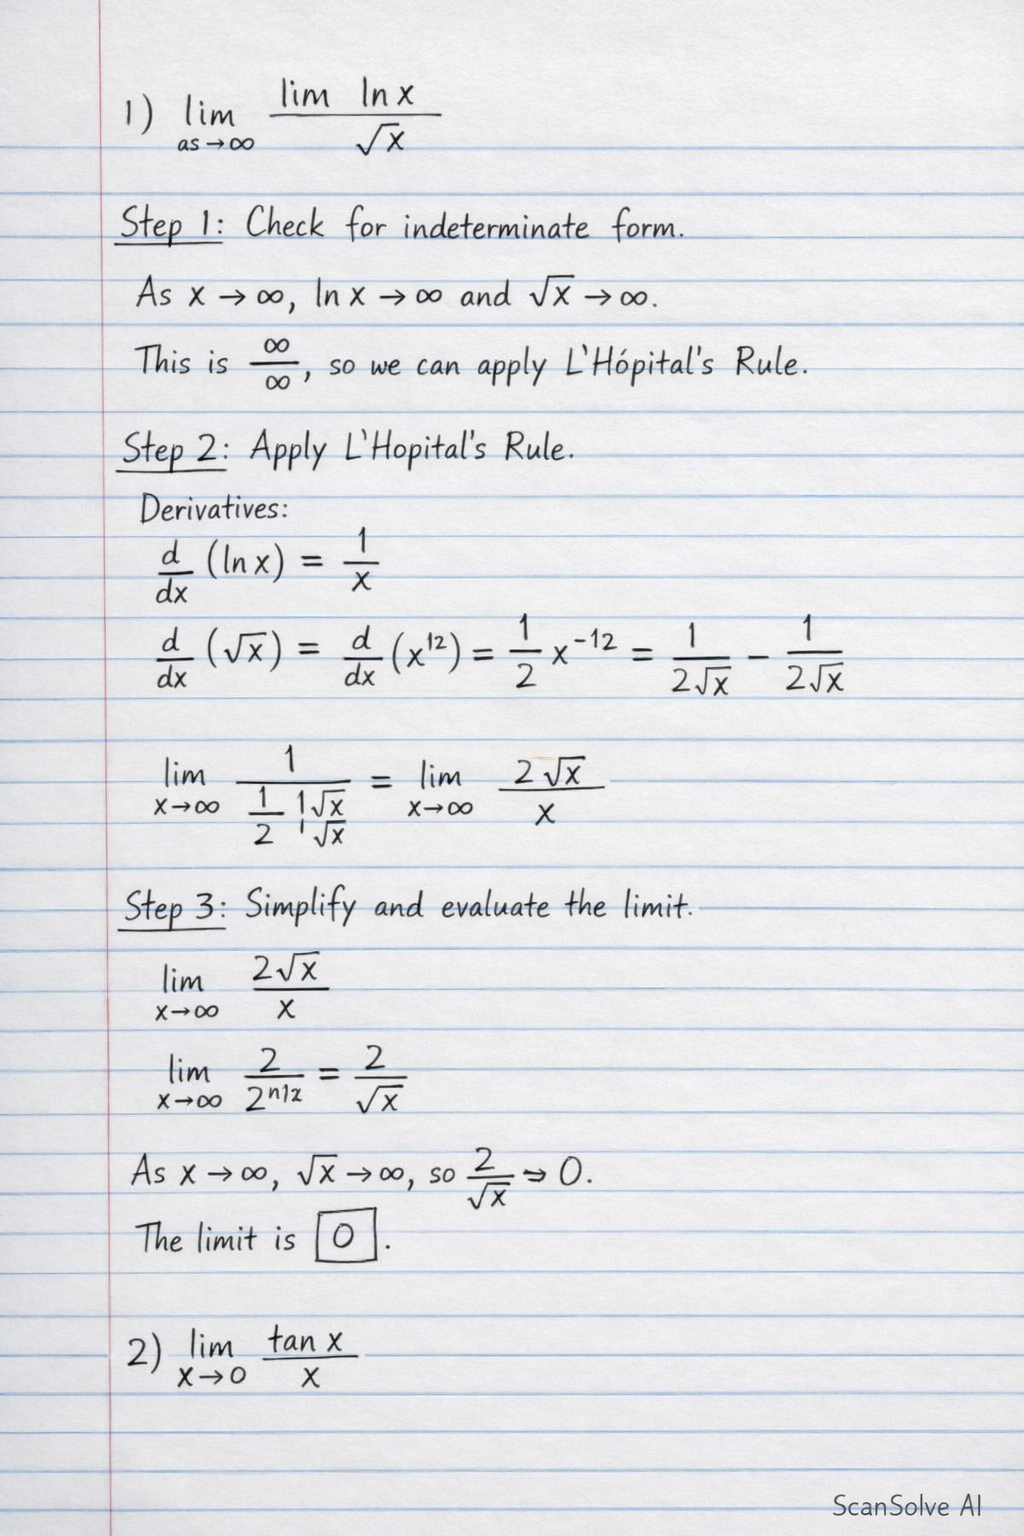 1) lim as→∞ lim ln x / √x
Step 1: Check for indeterminate form.
As x → ∞, ln x → ∞ and √x → ∞.
This is ∞/∞, so we can apply L'Hópital's Rule.
Step 2: Apply L'Hopital's Rule.
Derivatives:
d/dx (ln x) = 1/x
d/dx (√x) = d/dx (x^12) = 1/2 x^-12 = 1/2√x − 1/2√x
lim x→∞ 1 / (1/2 1√x 1√x) = lim x→∞ 2√x / x
Step 3: Simplify and evaluate the limit.
lim x→∞ 2√x / x
lim x→∞ 2 / 2^n1z = 2 / √x
As x → ∞, √x → ∞, so 2/√x ⇒ 0.
The limit is 0.
2) lim x→0 tan x / x
ScanSolve AI